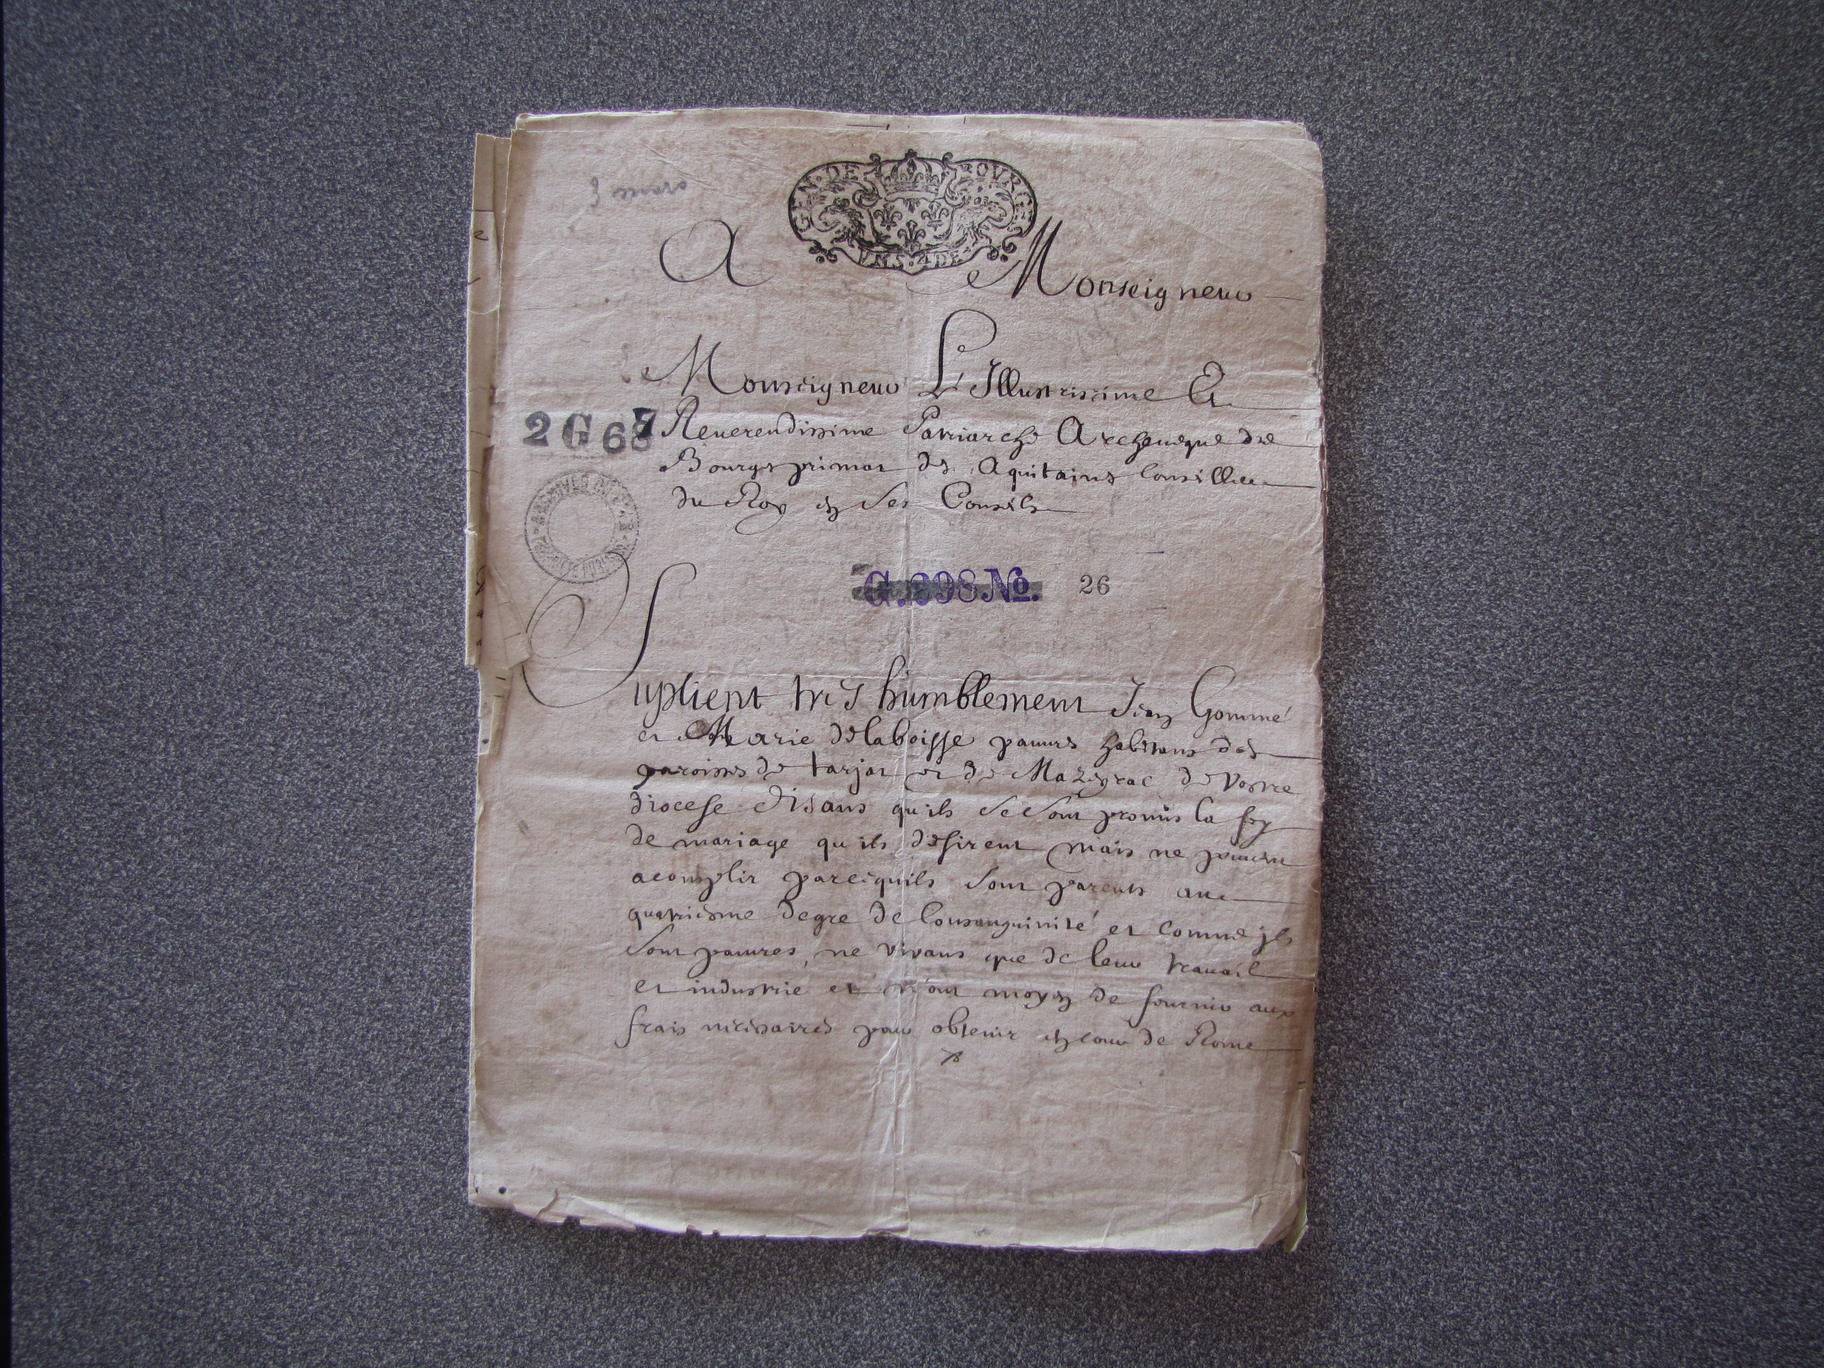 3 mars
GEN · DE BOVRGES
VN S · 4 DE
A Monseigneur
Monseigneur L'Illustrissime Et
2 G 687
Reuerendissime Patriarche Archeuesque de
Bourges primat des Aquitaines Conseiller
du Roy en Ses Conseils
G. 698. No. 26
Suplient tres humblement Jean Gommé
et Marie delaboisse pauures habitans des
paroisses de tarjat et de Mazeyrac de Vostre
diocese disans qu'ils se sont promis la foy
de mariage qu'ils desirent mais ne peuuent
acomplir parcequils sont parents au
quatriesme degre de Consanguinité et comme jls
sont pauures, ne vivans que de leur trauail
et industrie et n'ont moyen de fournir aux
frais necessaires pour obtenir en cour de Rome